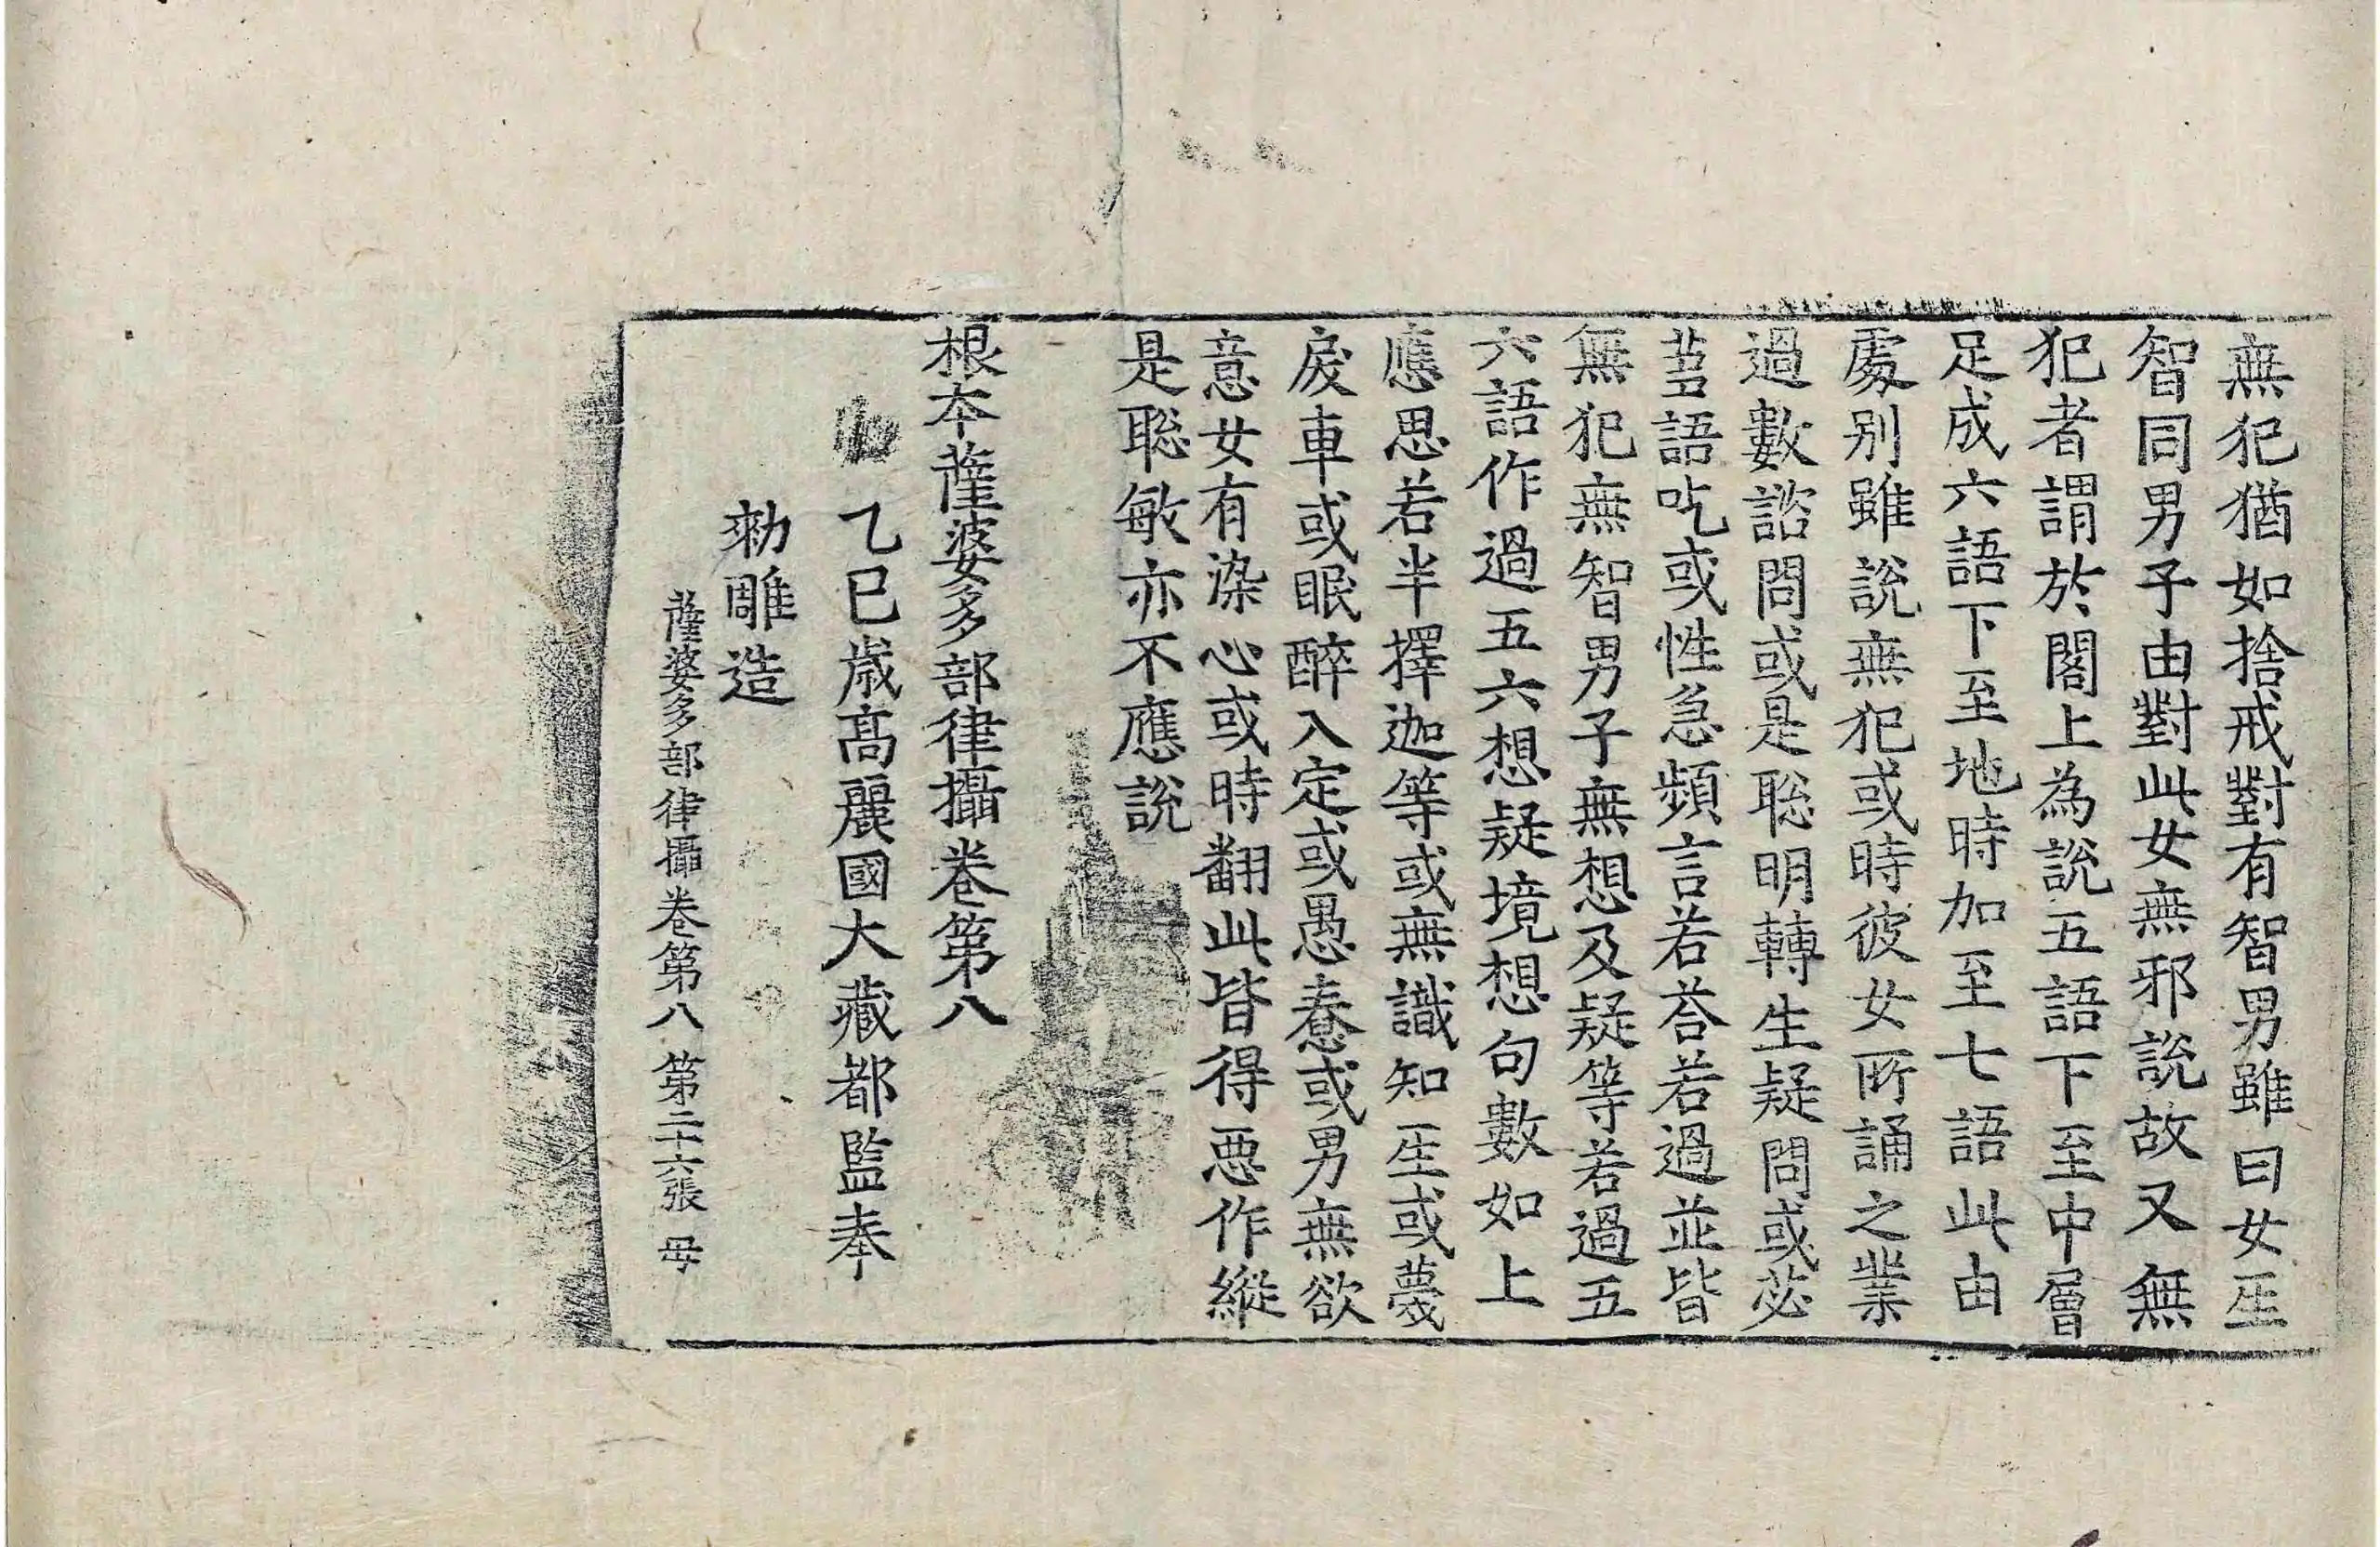 無犯猶如捨戒對有智男雖曰女𤯔
智同男子由對此女無邪說故又無
犯者謂於閣上為說五語下至中層
足成六語下至地時加至七語此由
處別雖說無犯或時彼女所誦之業
過數諮問或是聡明轉生疑問或苾
蒭語吃或性急頻言若荅若過並皆
無犯無智男子無想及疑等若過五
六語作過五六想疑境想句數如上
應思若半擇迦等或無識知𤯔或㝱
戾車或眠醉入定或愚惷或男無欲
意女有染心或時翻此皆得惡作縱
是聡敏亦不應說
根本薩婆多部律攝卷第八
乙巳歲高麗國大藏都監奉
勑雕造
薩婆多部律攝卷第八 第二十六張 母